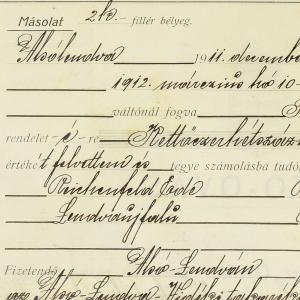 Másolat 2 k. fillér bélyeg.
Alsólendva 1911 decembe
1912. márczius hó 10-
váltónál fogva
rendelet-é-re Kettőezerhétszáz
értéket felvettem és tegye számolásba tudó
Reichenfeld Ede
Lendvaujfalu
Fizetendő Alsó-Lendván
az Alsó-Lendva-Vidéki takarék